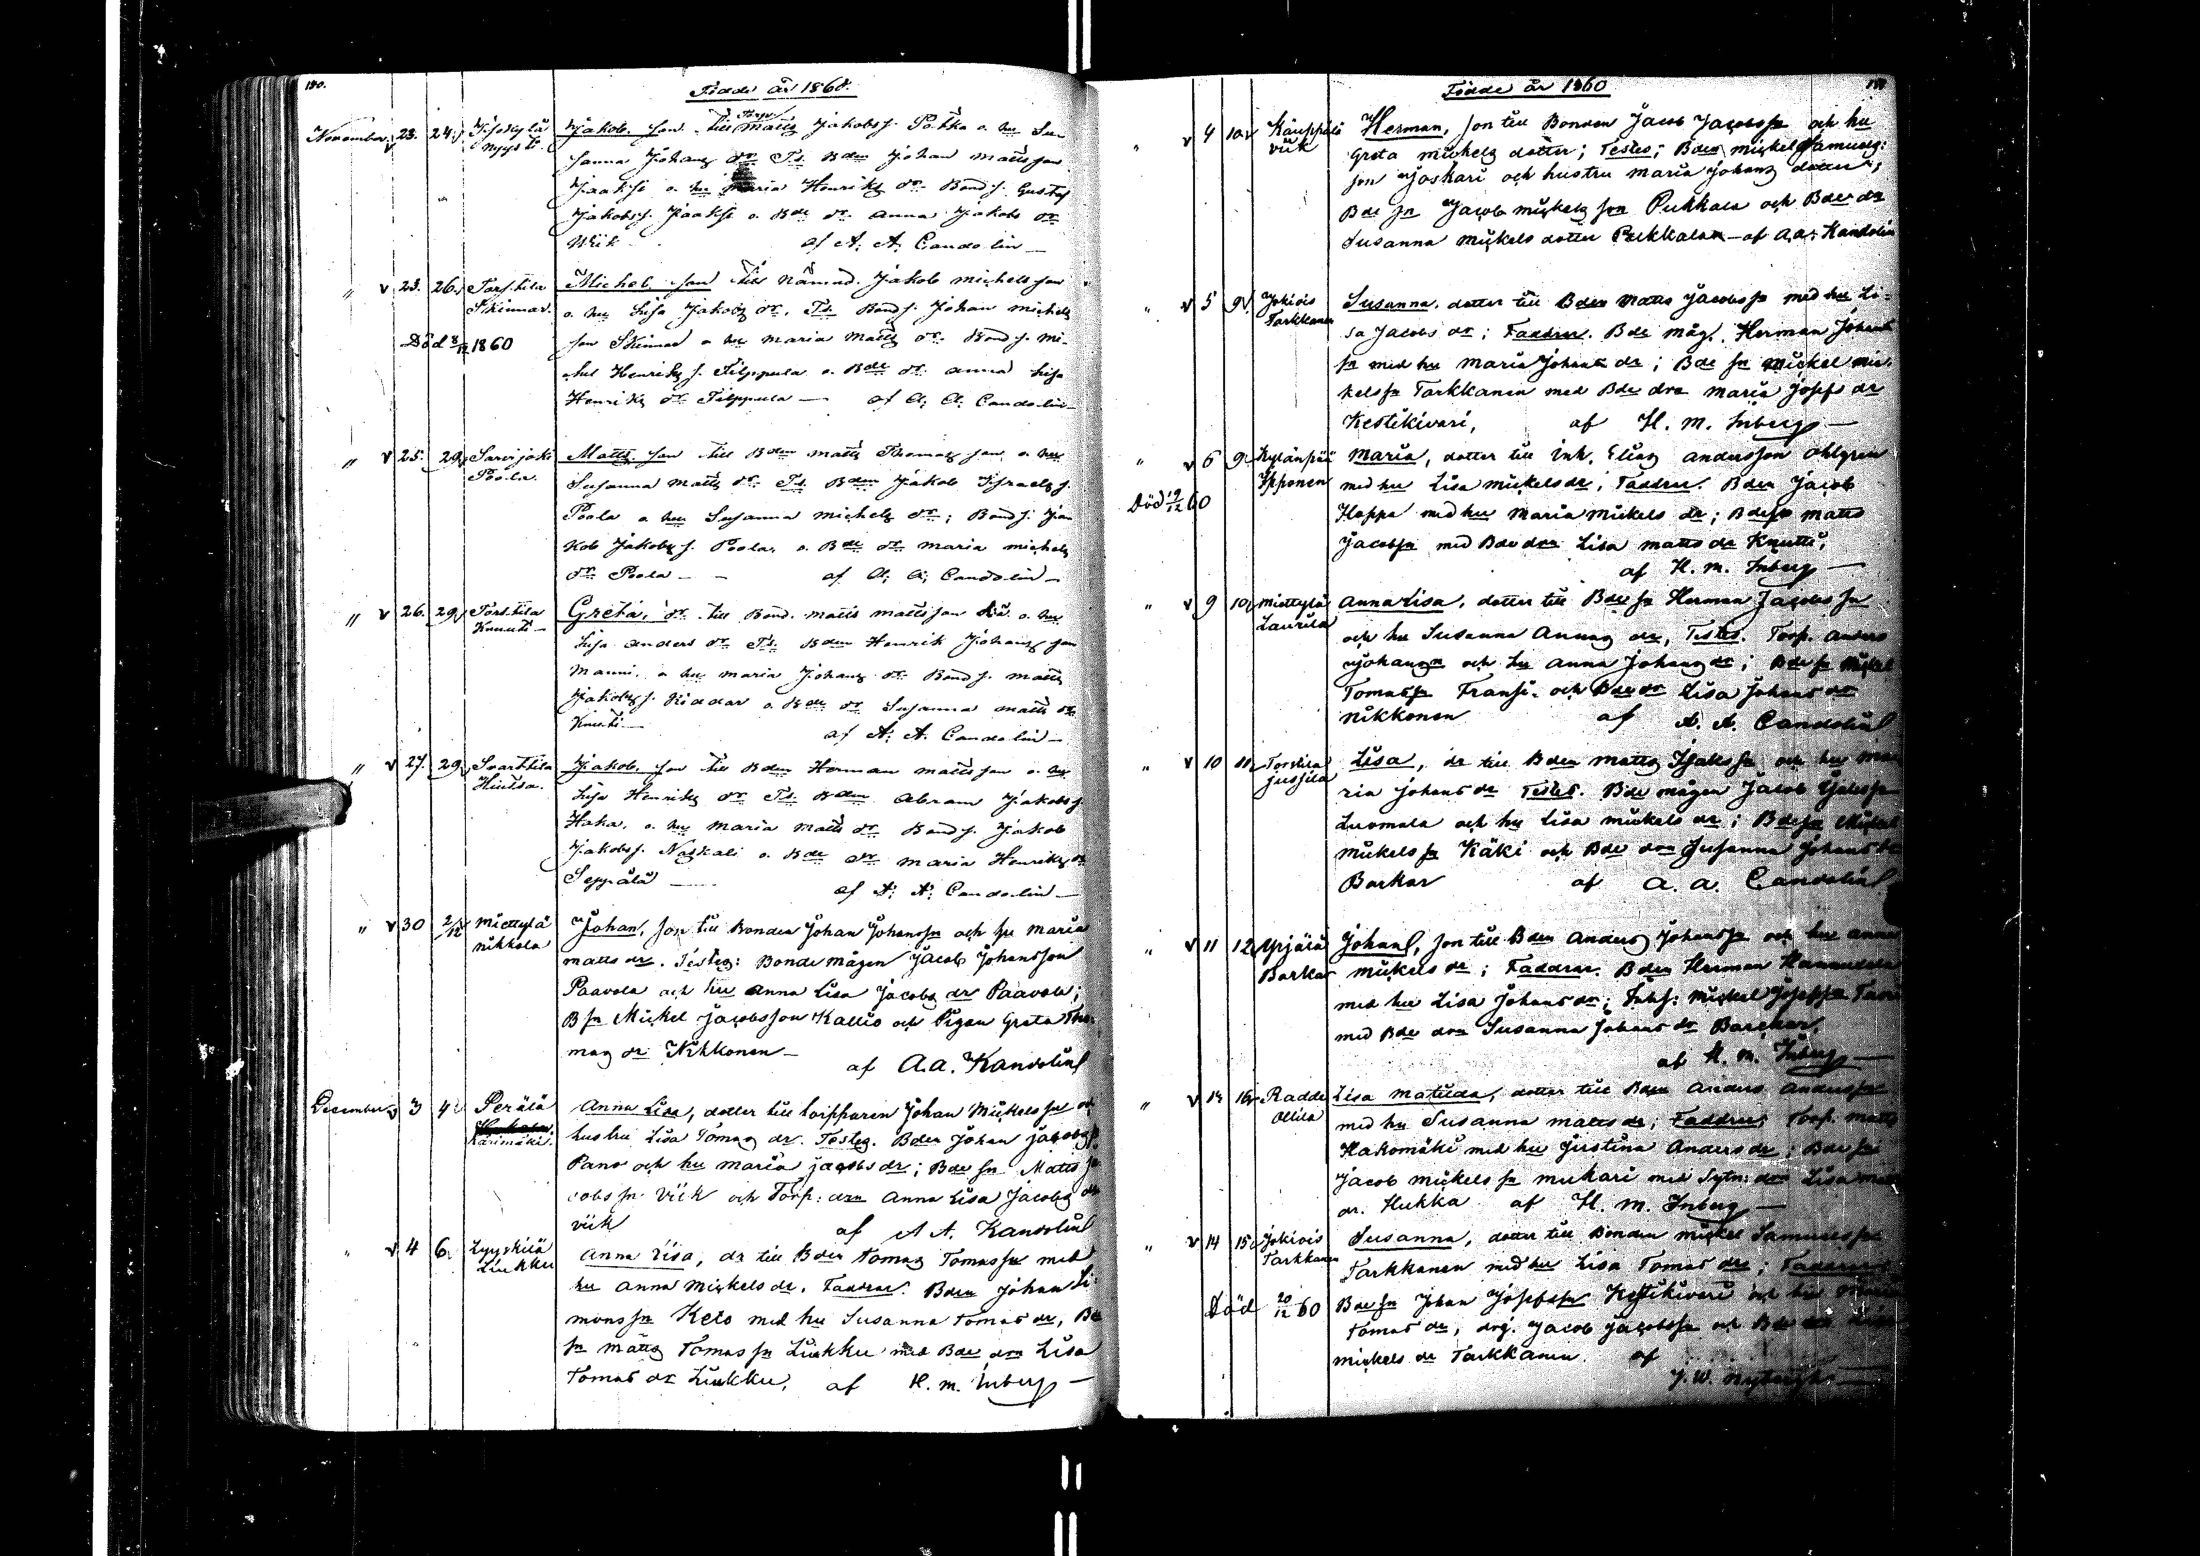 180.
Födde år 1860.
November 23. 24. Nyysti
Jakob, son till Torp. Matts Jakobss. Potka o. hu Su-
sanna Johans dr Ts. Bden Johan Mattsson
Jaakse o. hu Maria Henriks dr. Bonds. Gustaf
Jakobss. Jaakse o. Bde dr. Anna Jakobs dr
Wiik af A. A. Candolin
" 23. 26. Torstila Skinnar.
Michel, son till Nämnd. Jakob Michelsson
o. hu Lisa Jakobs dr, Ts. Bonds. Johan Michels
Död 8/12 1860
son Skinnar o hu Maria Matts dr. Bonds. Mi-
chel Henriks s. Filppula o. Bde dr. Anna Lisa
Henriks dr Filppula — af A. A. Candolin
" 25. 29. Sarvijoki Poola.
Matts, son till Bden Matts Thomasson o. hu
Susanna Matts dr Ts. Bden Jakob Israels s.
Poola o hu Susanna Michels dr; Bonds. Ja-
kob Jakobs s. Poola, o. Bde dr Maria Michels
dr Poola — af A. A. Candolin
" 26. 29. Torstila Knuuti
Greta, dr. till Bond. Matts Mattsson o. hu
Lisa Anders dr Ts. Bden Henrik Johansson
Manni, o hu Maria Johans dr Bonds. Matts
Jakobs s. Riddar o. Bde dr Susanna Matts dr
Knuuti — af A. A. Candolin
" 27. 29. Svarttila Hintsa.
Jakob, son till Bden Herman Mattsson o. hu
Lisa Henriks dr Ts. Bden Abram Jakobs s.
Haka, o. hu Maria Matts dr Bonds. Jakob
Jakobs s. Naskali o. Bde dr Maria Henriks dr
Seppälä — af A. A. Candolin
" 30 2/12 Miettylä Nikkola
Johan, son till Bonden Johan Johansson och hu Maria
Matts dr. Testes: Bondemågen Jacob Johansson
Paavola och hu Anna Lisa Jacobs dr Paavola;
B sn Mickel Jacobsson Kallio och Pigan Greta Tho-
mas dr Nikkonen — af A.A. Kandolin
December 3 4 Perälä Karimäki.
Anna Lisa, dotter till torpparen Johan Mickels sn och
hustru Lisa Tomas dr. Testes. Bden Johan Jacobs
Pano och hu Maria Jacobs dr; Bde sn Matts Ja-
cobs sn Viik och Torp: drn Anna Lisa Jacobs dr
Viik af A A. Kandolin
" 4 6. Lyyskilä Liukku
Anna Lisa, dr till Bden Tomas Tomas sn med
hu Anna Mickels dr, Faddrar. Bden Johan Si-
mons sn Keto med hu Susanna Tomas dr, Bde
sn Matts Tomas sn Liukku med Bde drn Lisa
Tomas dr Liukku, af H. M. Inberg —
Födde år 1860
" 4 10 Käuppilä Viik
Herman, son till Bonden Jacob Jacobssn och hu
Greta Mickels dotter; Testes; Bden Mickel Samuels:
son Joskari och hustru Maria Johans dotter;
Bde sn Jacob Mickels son Pukkala och Bde dr
Susanna Mickels dotter Pukkala — af A.A. Kandolin
" 5 9 Jokiois Tarkkanen
Susanna, dotter till Bden Matts Jacobs sn med hu Li-
sa Jacobs dr; Faddrar. Bde måg. Herman Johans
sn med hu Maria Johans dr; Bde sn Mickel Mic-
kels sn Tarkkanen med Bde drn Maria Josefs dr
Kestikivari, af H. M. Inberg —
" 6 9 Kylänpää Ypponen
Maria, dotter till Inh. Elias Andersson Ahlgren
med hu Lisa Mickels dr; Faddrar. Bden Jacob
Död 19/12 60
Hoppa med hu Maria Mickels dr; Bde sn Matts
Jacobs sn med Bde drn Lisa Matts dr Knutti,
af H. M. Inberg —
" 9 10 Miettylä Laurila
Anna Lisa, dotter till Bde sn Herman Jacobs sn
och hu Susanna Annas dr, Testes. Torp. Anders
Johans sn och hu Anna Johans dr; Bde sn Mickel
Tomas sn Fransi och Bde dr Lisa Johans dr
Nikkonen af A. A. Candolin
" 10 11 Torstila Jussila
Lisa, dr till Bden Matts Isaks sn och hu Ma-
ria Johans dr Testes. Bde mågen Jacob
Luomala och hu Lisa Mickels dr; Bde sn Mickel
Mickels sn Käki och Bde drn Susanna Johans dr
Barkar af A. A. Candolin
" 11 12 Ypjälä Barkar
Johan, son till Bden Anders Johans sn och hu Anna
Mickels dr; Faddrar. Bden Herman
med hu Lisa Johans dr; Inh: Mickel Josefs sn
med Bde drn Susanna Johans dr Barckar,
af H. M. Inberg —
" 16 Radde Ollila
Lisa Matilda, dotter till Bden Anders Anders sn
med hu Susanna Matts dr; Faddrar, Torp. Matts
Hakomäki med hu Justina Anders dr; Bde sn
Jacob Mickels sn Mukari med Sytn: drn Lisa
dr. Hukka af H. M. Inberg —
" 14 15 Jokiois Tarkkanen
Susanna, dotter till Bonden Mickel Samuels sn
Tarkkanen med hu Lisa Tomas dr; Faddrar
Död 20/12 60
Bde sn Johan Josefs sn Kestikivari och hu Maria
Tomas dr, drg. Jacob Jacobs sn och Bde drn
Mickels dr Tarkkanen. af